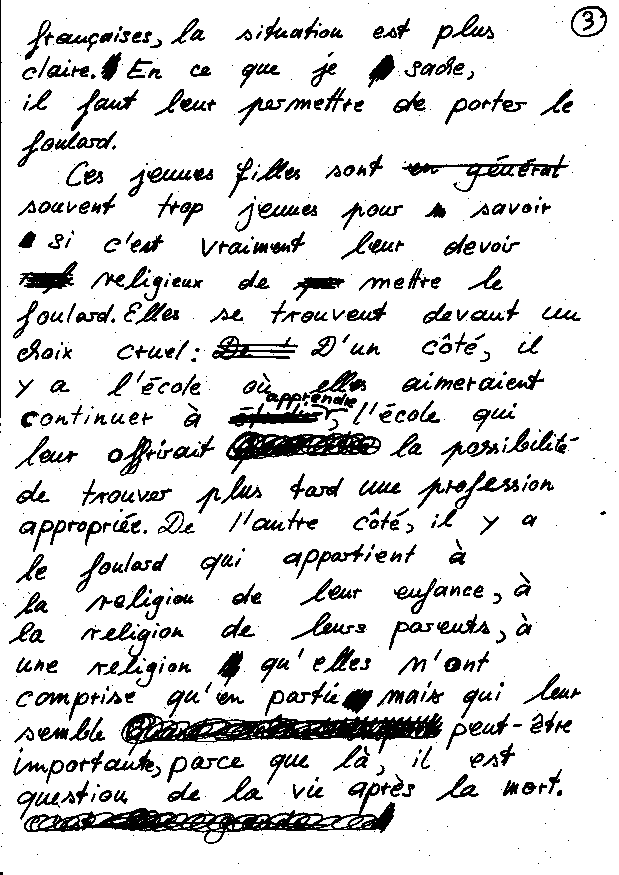 3
françaises, la situation est plus
claire. En ce que je sache,
il faut leur permettre de porter le
foulard.
Ces jeunes filles sont en général
souvent trop jeunes pour savoir
si c'est vraiment leur devoir
religieux de mettre le
foulard. Elles se trouvent devant un
choix cruel: D'un côté, il
y a l'école où elles aimeraient
apprendre
continuer à , l'école qui
leur offrirait la possibilité
de trouver plus tard une profession
appropriée. De l'autre côté, il y a
le foulard qui appartient à
la religion de leur enfance, à
la religion de leurs parents, à
une religion qu'elles n'ont
comprise qu'en partie mais qui leur
semble peut-être
importante, parce que là, il est
question de la vie après la mort.